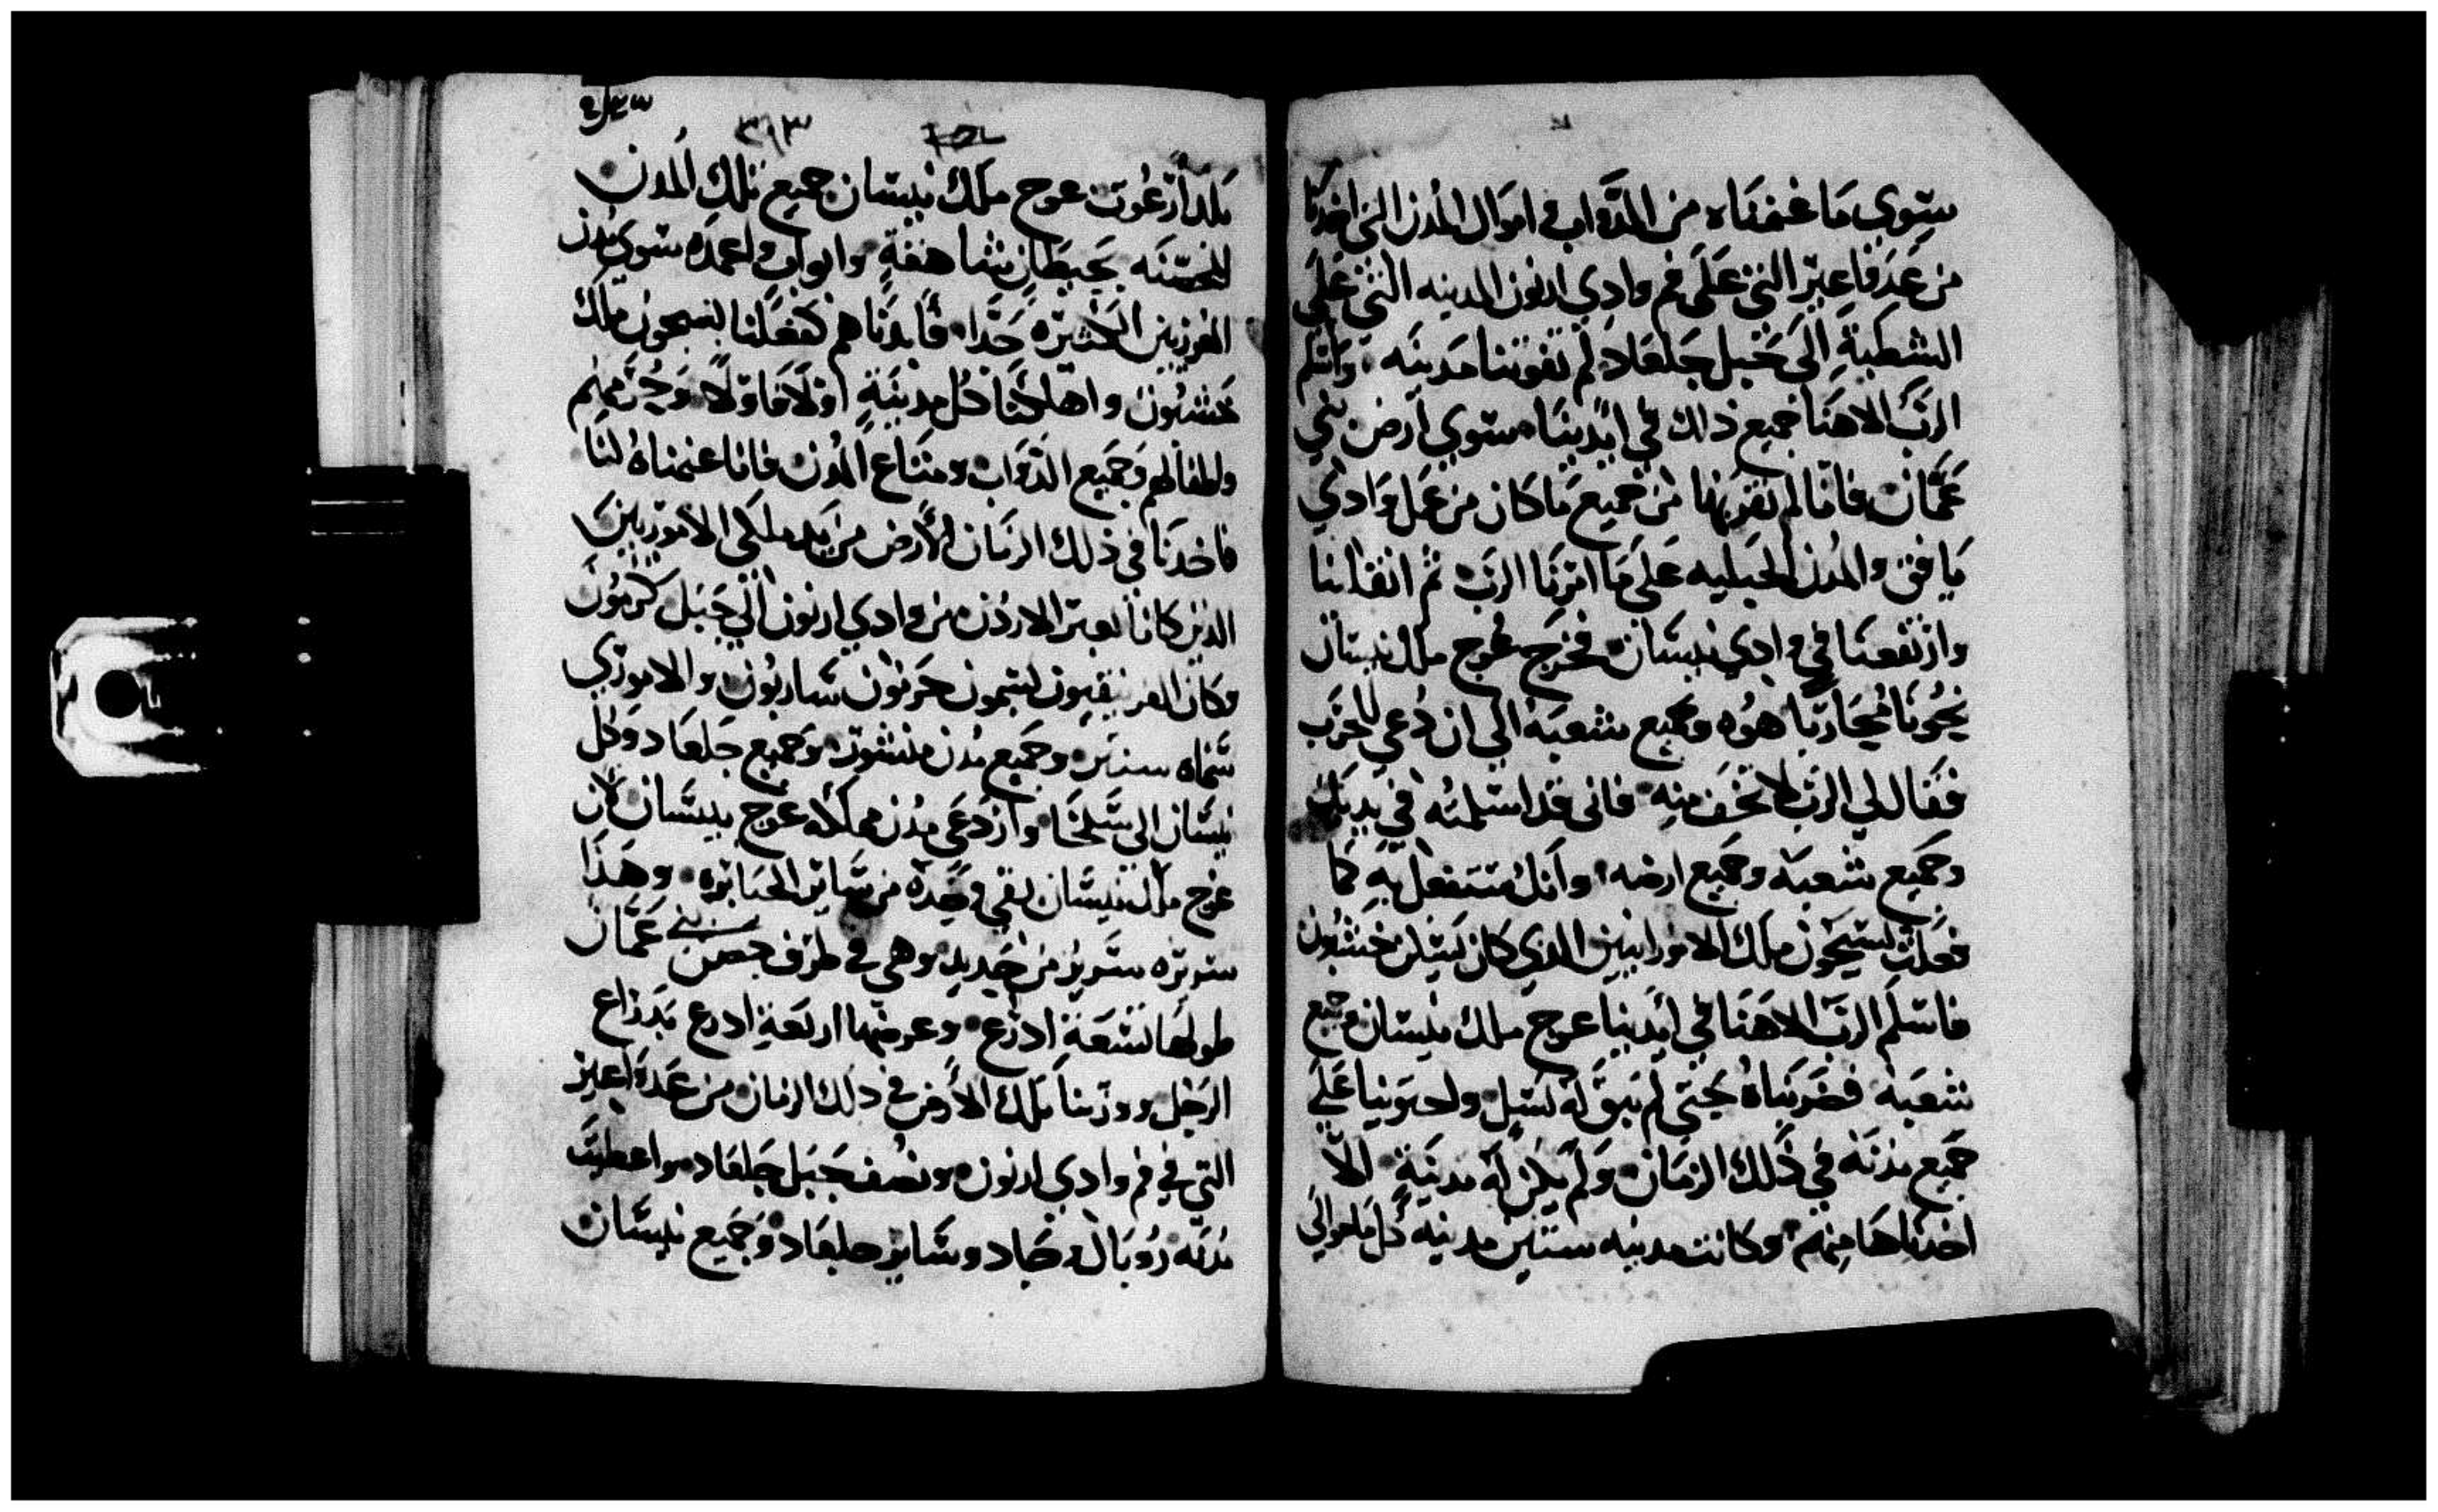 سوي ما غنمناه من الدواب واموال المدن التي اخدنا
من عدفاعير التي علي فم وادي ارنون المدينه التي علي
الشطيه الي جبل جلعاد لم تفوتنا مدينه واسلم
الرب الاهنا جميع ذلك في ايدينا سوي ارض بني
عمان فانا لم نقربها من جميع ما كان من عمل وادي
يافق والمدن الجبليه علي ما امرنا الرب ثم انفتلنا
وارتفعنا في وادي نيسان فخرج عوج ملك نيسان
نحونا محاربا هوه وجميع شعبه الي ان دعي للحرب
فقال لي الرب لا تخف منه فاني قد اسلمته في يديك
وجميع شعبه وجميع ارضه وانك ستفعل به كما
فعلت بسيحون ملك الامورانيين الدي كان يسكن حشبون
فاسلم الرب الاهنا في ايدينا عوج ملك نيسان وجميع
شعبه فضربناه حتي لم يبق له نسل واحتوينا علي
جميع مدنه في ذلك الزمان ولم يكن له مدينة الا
اخدناها منهم وكانت مدينه ستين مدينه كل ما حوالي
٣١٣
بلد ارغوت عوج ملك نيسان جميع تلك المدن
المحصنه بحيطان شاهقة وابواب واعمده سوي مدن
الفرزيين الكثيره جدا فابدناهم كفعلنا بسيحون ملك
حشبون واهلكنا كل مدينة اولا فاولا وحريمهم
واطفالهم وجميع الدواب ومتاع المدن فانا غنمناه لنا
فاخدنا في ذلك الزمان الارض من يد ملكي الاموريين
الذين كانا بعبر الاردن من وادي ارنون الي جبل حرمون
وكان الفرنيقيون يسمون حرمون ساريون والاموري
سماه سنير وجميع مدن منشوت وجميع جلعاد وكل
نيسان الي سلخا وازدعي مدن مملكه عوج بيسان لان
عوج ملك نيسان بقي وحده من ساير الجبابره وهذا
سريره سرير من حديد وهي في طرف حصن بني عمان
طولها تسعة ادرع وعرضها اربعة ادرع بدراع
الرجل وورثنا تلك الارض في ذلك الزمان من عدفاعير
التي في فم وادي ارنون ونصف جبل جلعاد واعطيت
مدنه روبال وجاد وساير جلعاد وجميع نيسان